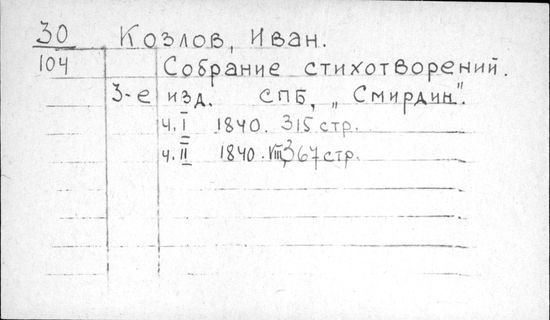 30 Козлов, Иван.
104 Собрание стихотворений.
3-е изд. СПБ, „Смирдин".
ч. I 1840. 315 стр.
ч. II 1840. VIII, 367 стр.